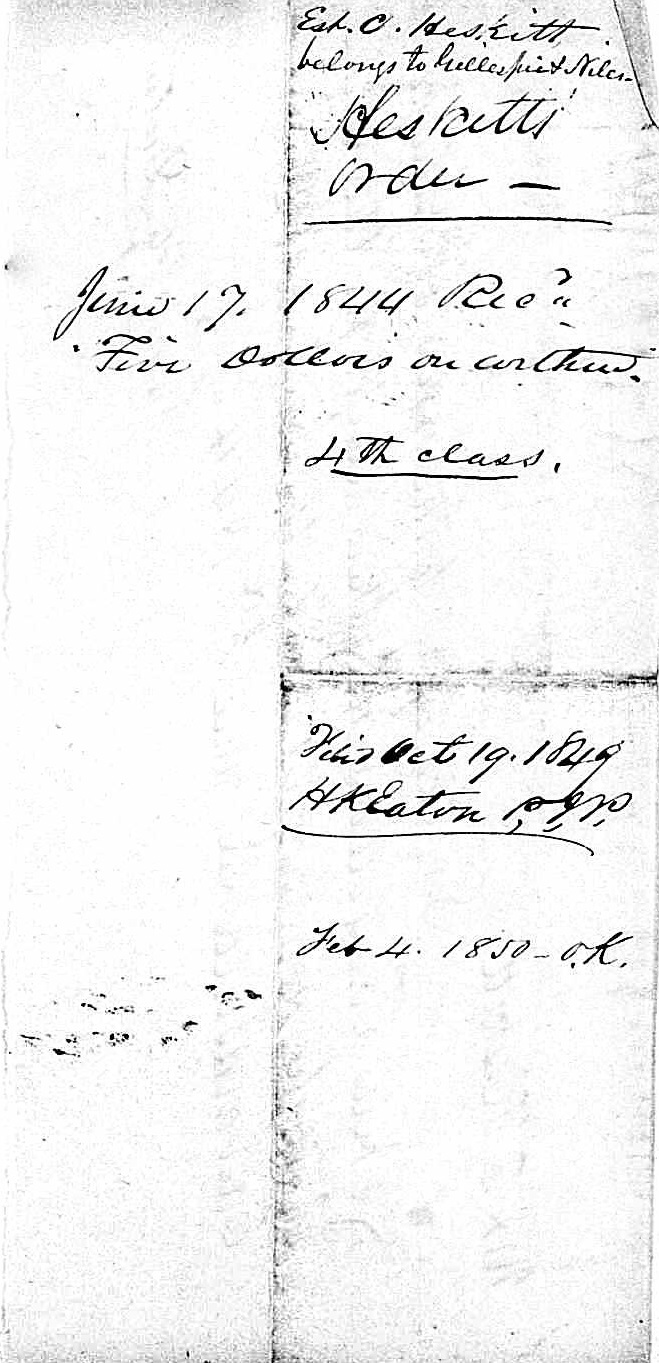 Est. C. Heskitt
belongs to Gillespie & Niles
Heskitts
order —
June 17. 1844 Rec'd
Five Dollars on within.
4th class.
Filed Oct 19. 1849
H K Eaton P.J.P.
Feb 4. 1850 - O.K.